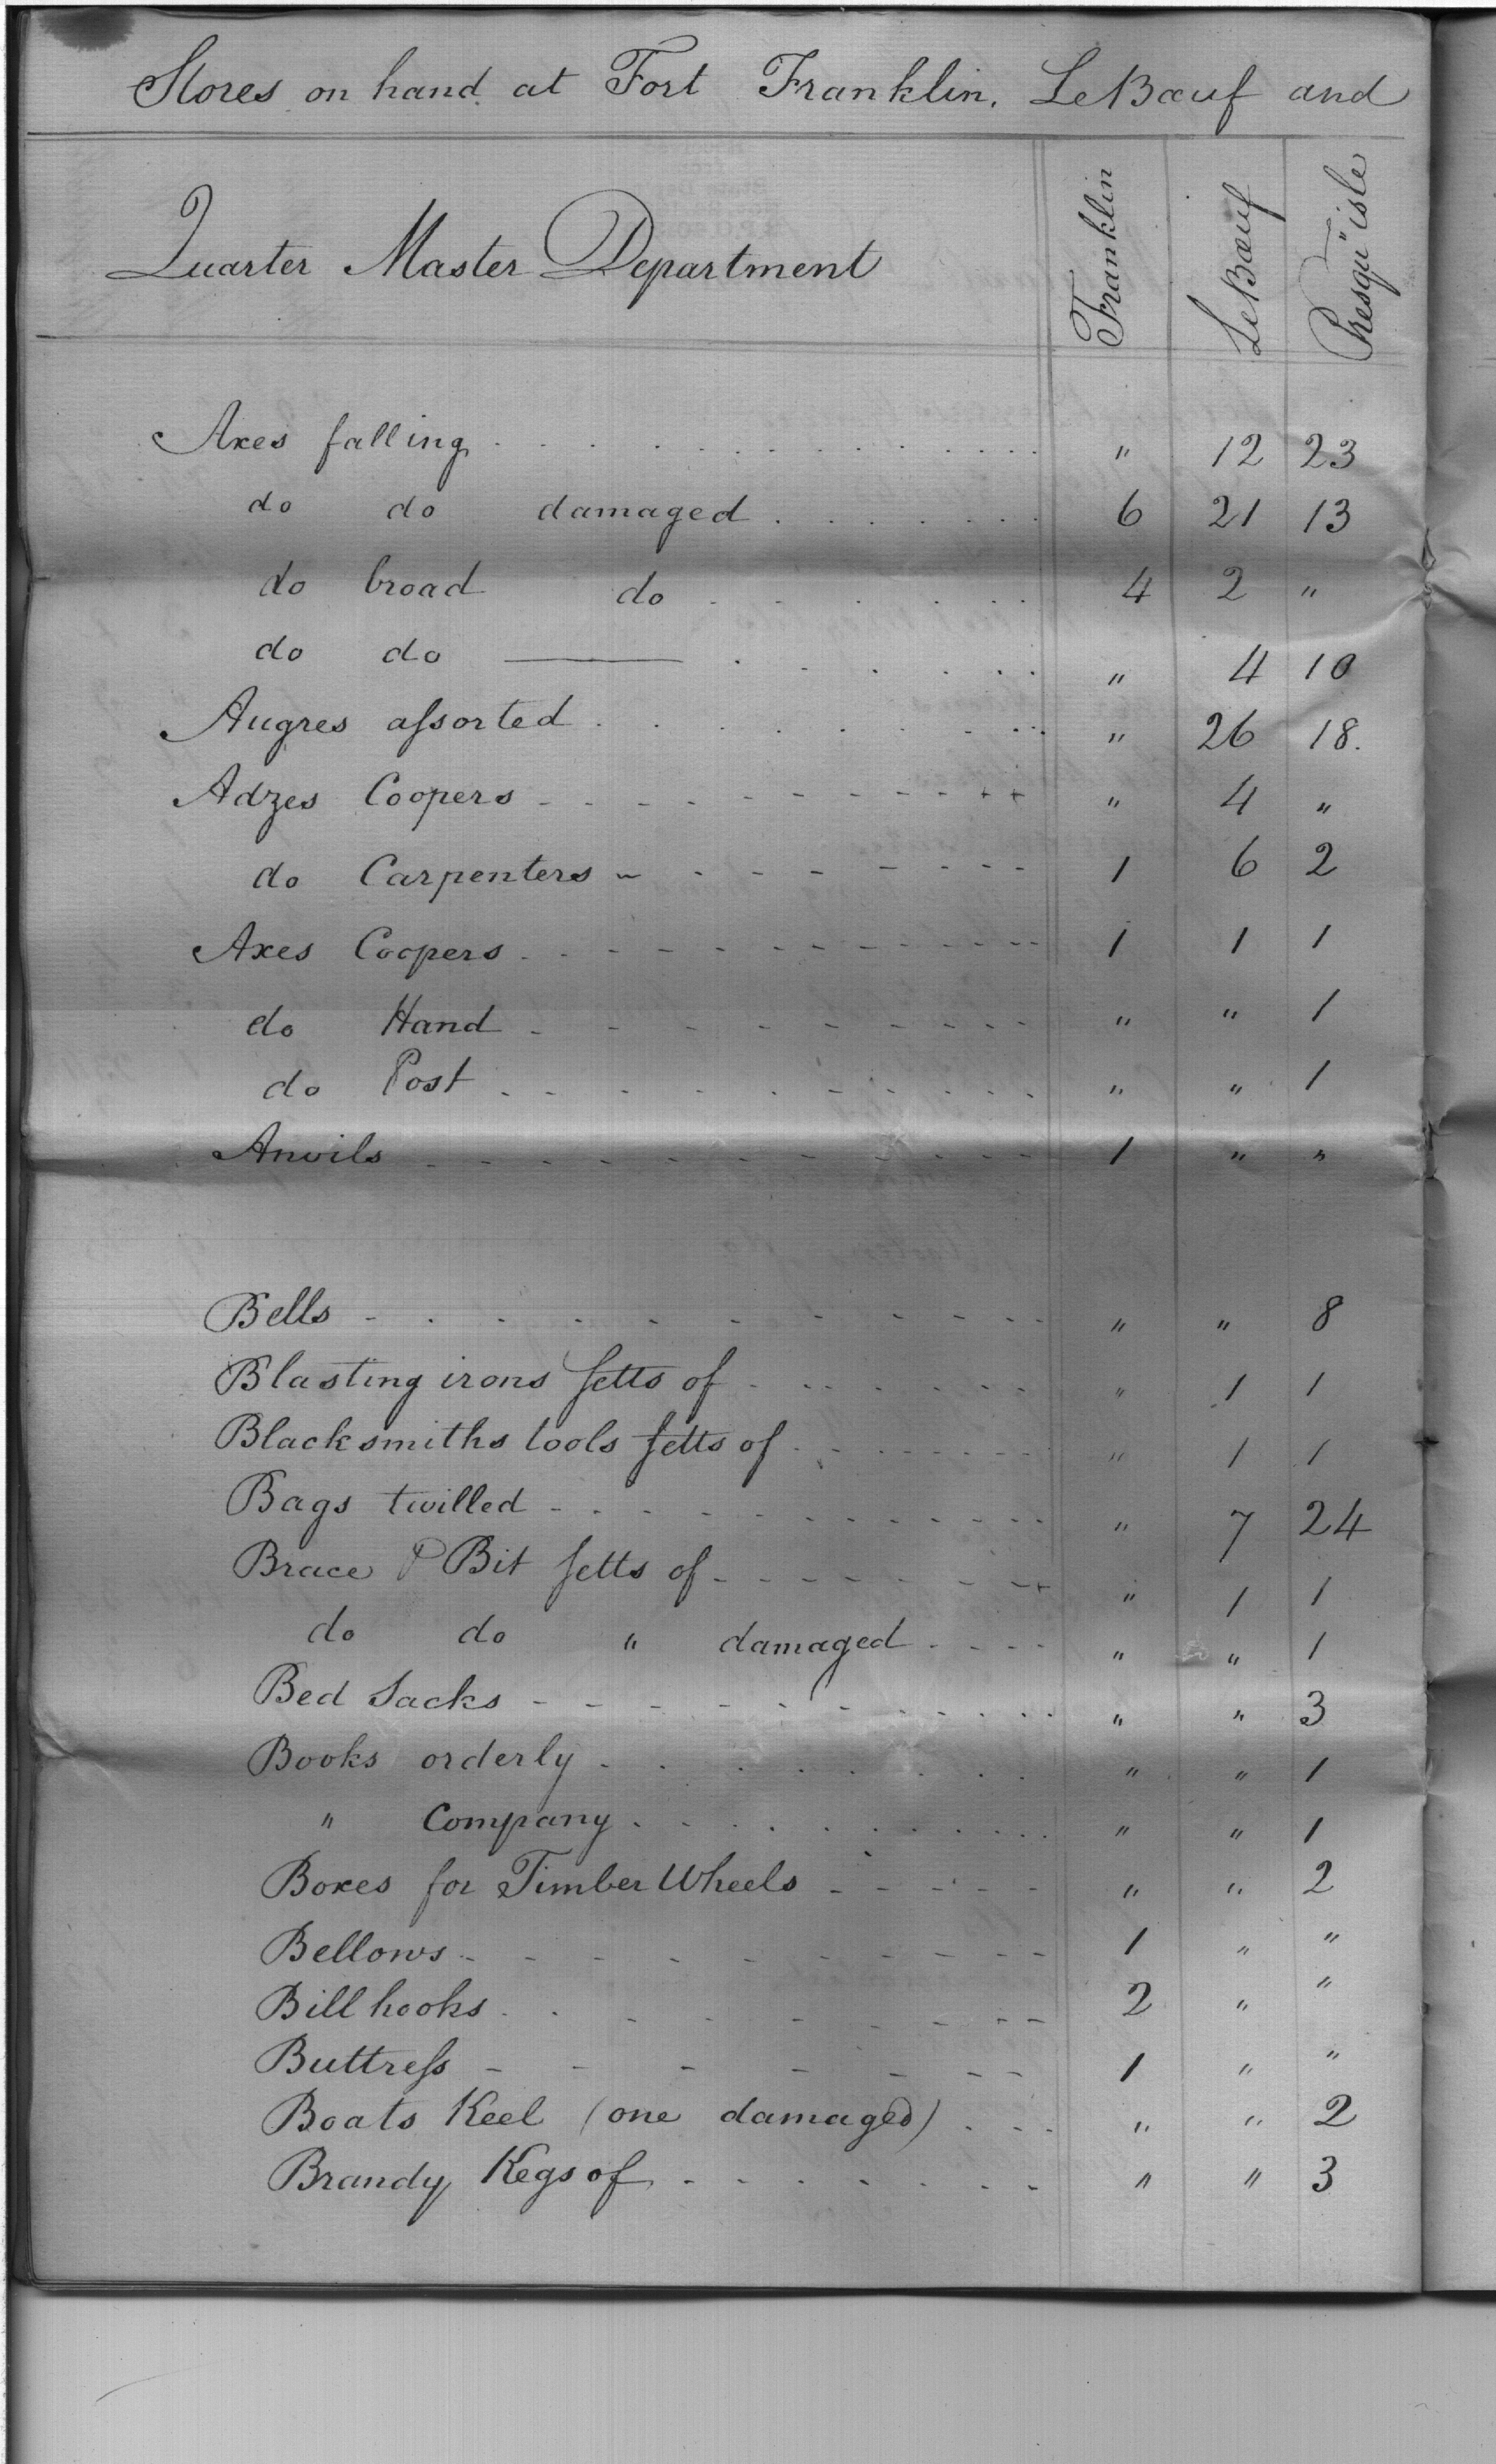 Stores on hand at Fort Franklin, LeBœuf and
Quarter Master Department Franklin LeBœuf Presqu"isle
Axes falling . . . . . . . . . . " 12 23
do do damaged . . . . . . . 6 21 13
do broad do . . . . . . 4 2 "
do do ——— . . . . . . " 4 10
Augres aſsorted . . . . . . . . " 26 18.
Adzes Coopers - - - - - - - - - + + " 4 "
do Carpenters - - - - - - - - 1 6 2
Axes Coopers - - - - - - - - - - - 1 1 1
do Hand - - - - - - - - - " " 1
do Post - - - - - - - - - " " 1
Anvils - - - - - - - - - - - 1 " "
Bells - - - - - - - - - - " " 8
Blasting irons ſetts of - - - - - - " 1 1
Blacksmiths tools ſetts of - - - - - - " 1 1
Bags twilled - - - - - - - - - - " 7 24
Brace & Bit ſetts of - - - - - - - + " 1 1
do do " damaged - - - - " " 1
Bed Sacks - - - - - - - - - - " " 3
Books orderly . . . . . . . . " " 1
" Company . . . . . . . . . " " 1
Boxes for Timber Wheels - - - - - " " 2
Bellows - - - - - - - - - - 1 " "
Bill hooks - - - - - - - - - 2 " "
Buttreſs - - - - - - - - 1 " "
Boats Keel (one damaged) . . . " " 2
Brandy Kegs of - - - - - - - " " 3